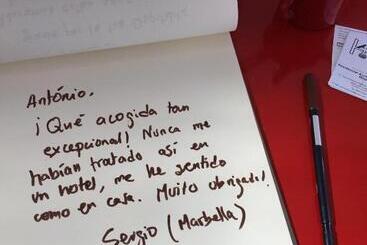 António.
¡Qué acogida tan
excepcional! Nunca me
habían tratado así en
un hotel, me he sentido
como en casa. Muito obrigado!.
Sergio (Marbella)